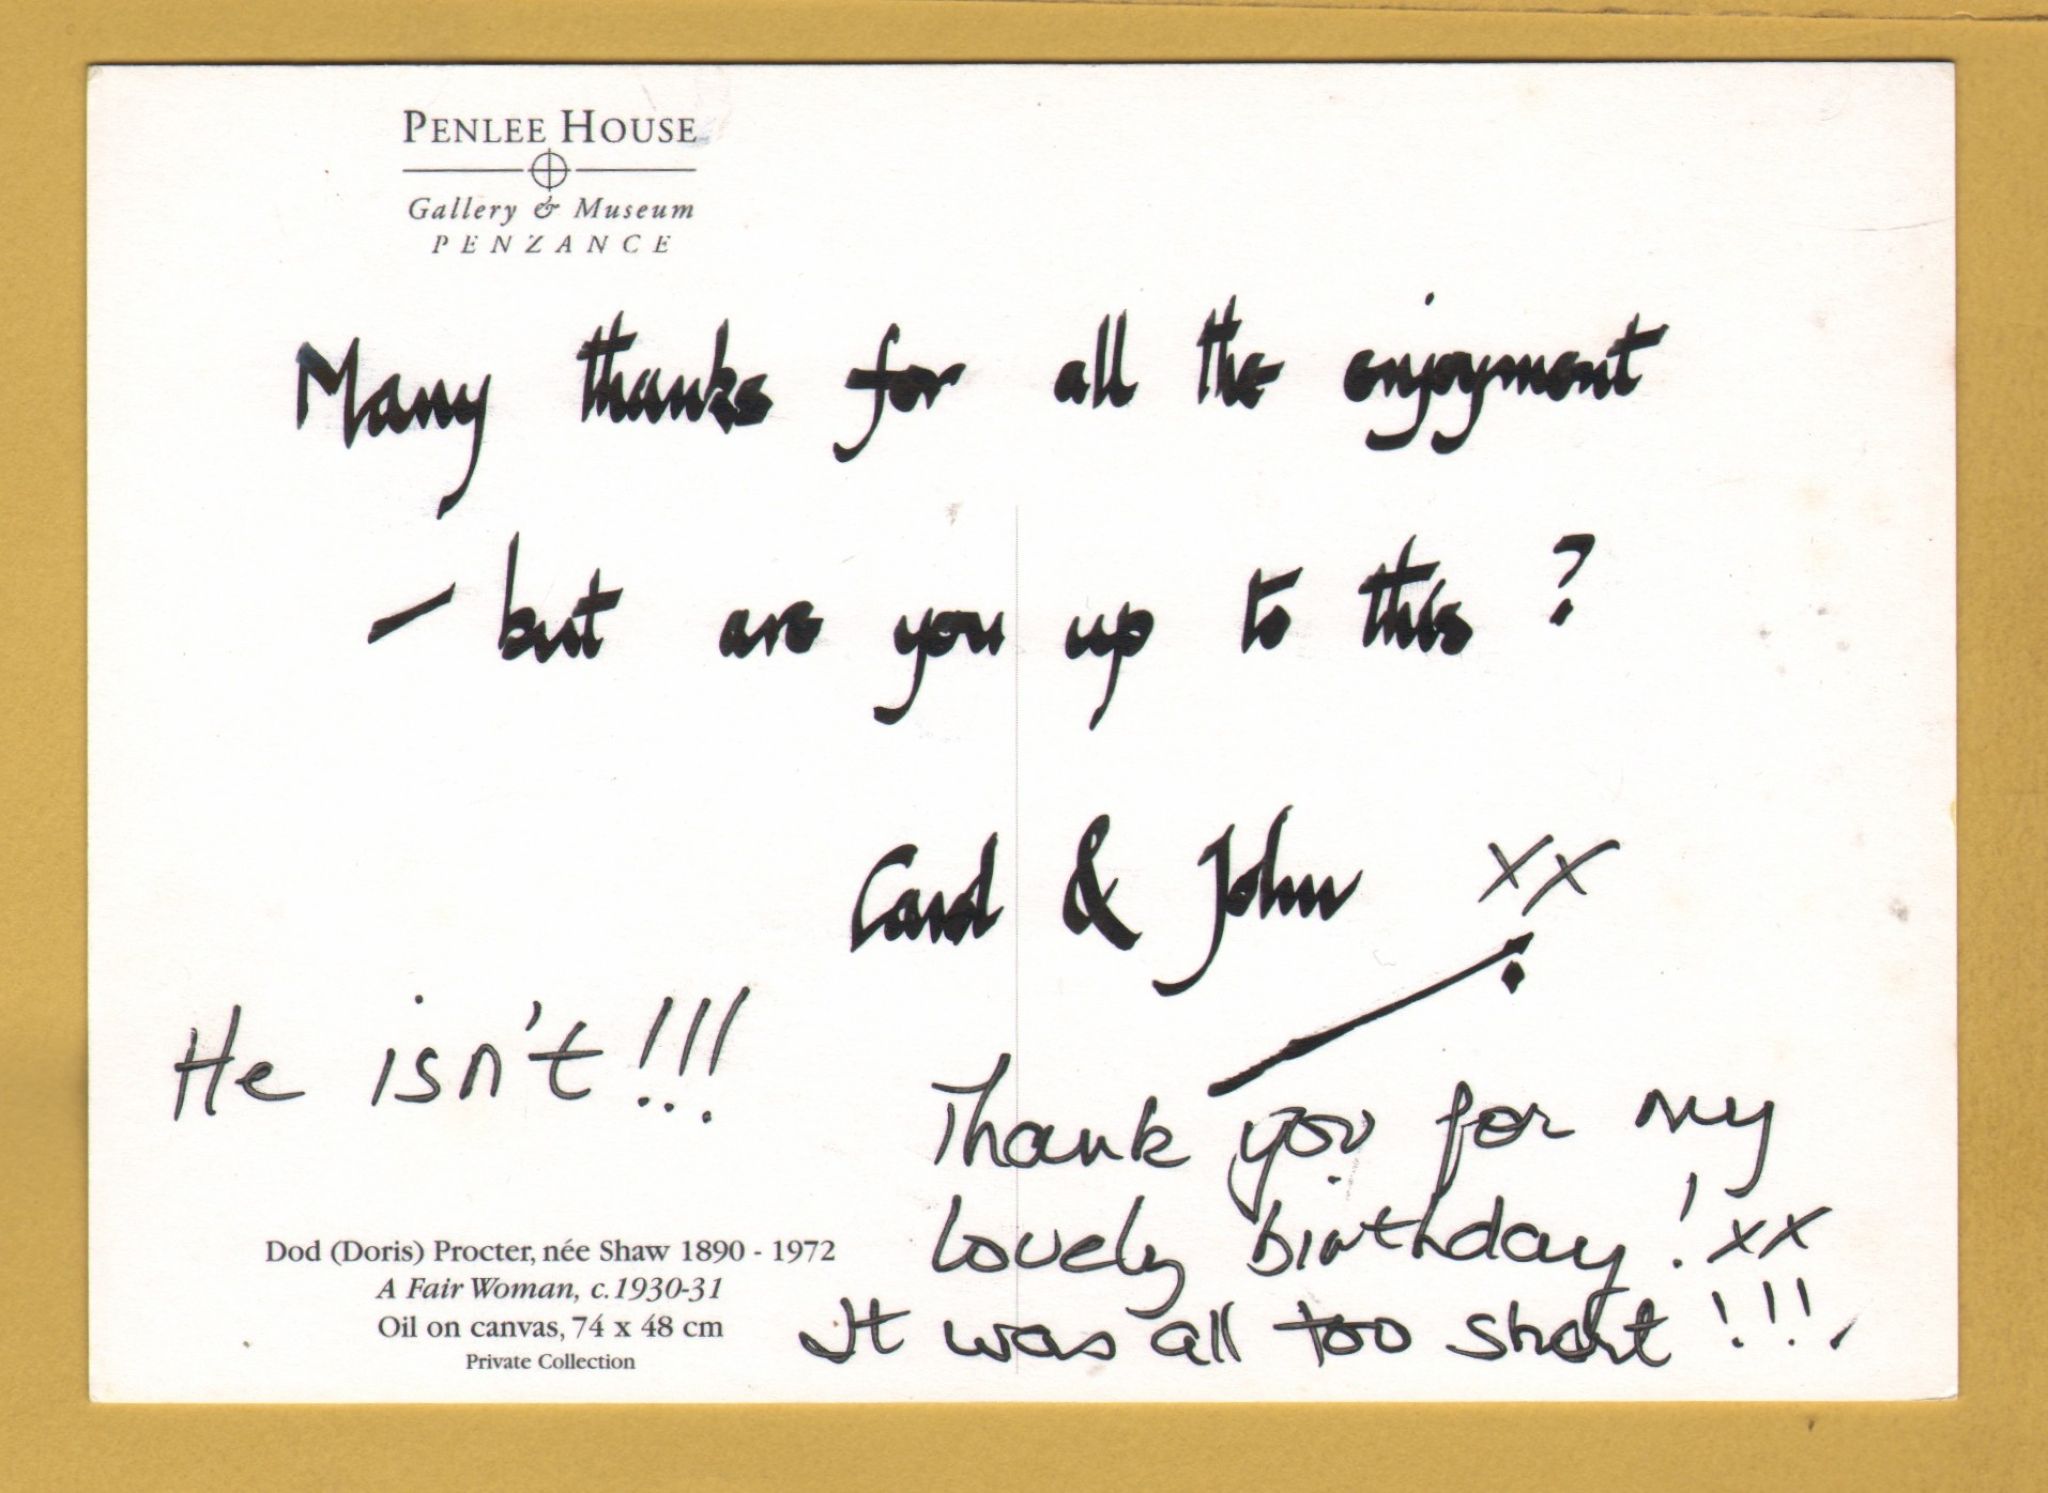 PENLEE HOUSE
Gallery & Museum
PENZANCE
Many thanks for all the enjoyment
– but are you up to this?
Carol & John xx
He isn't!!!
Thank you for my
lovely birthday! xx
It was all too short!!!.
Dod (Doris) Procter, née Shaw 1890 - 1972
A Fair Woman, c.1930-31
Oil on canvas, 74 x 48 cm
Private Collection